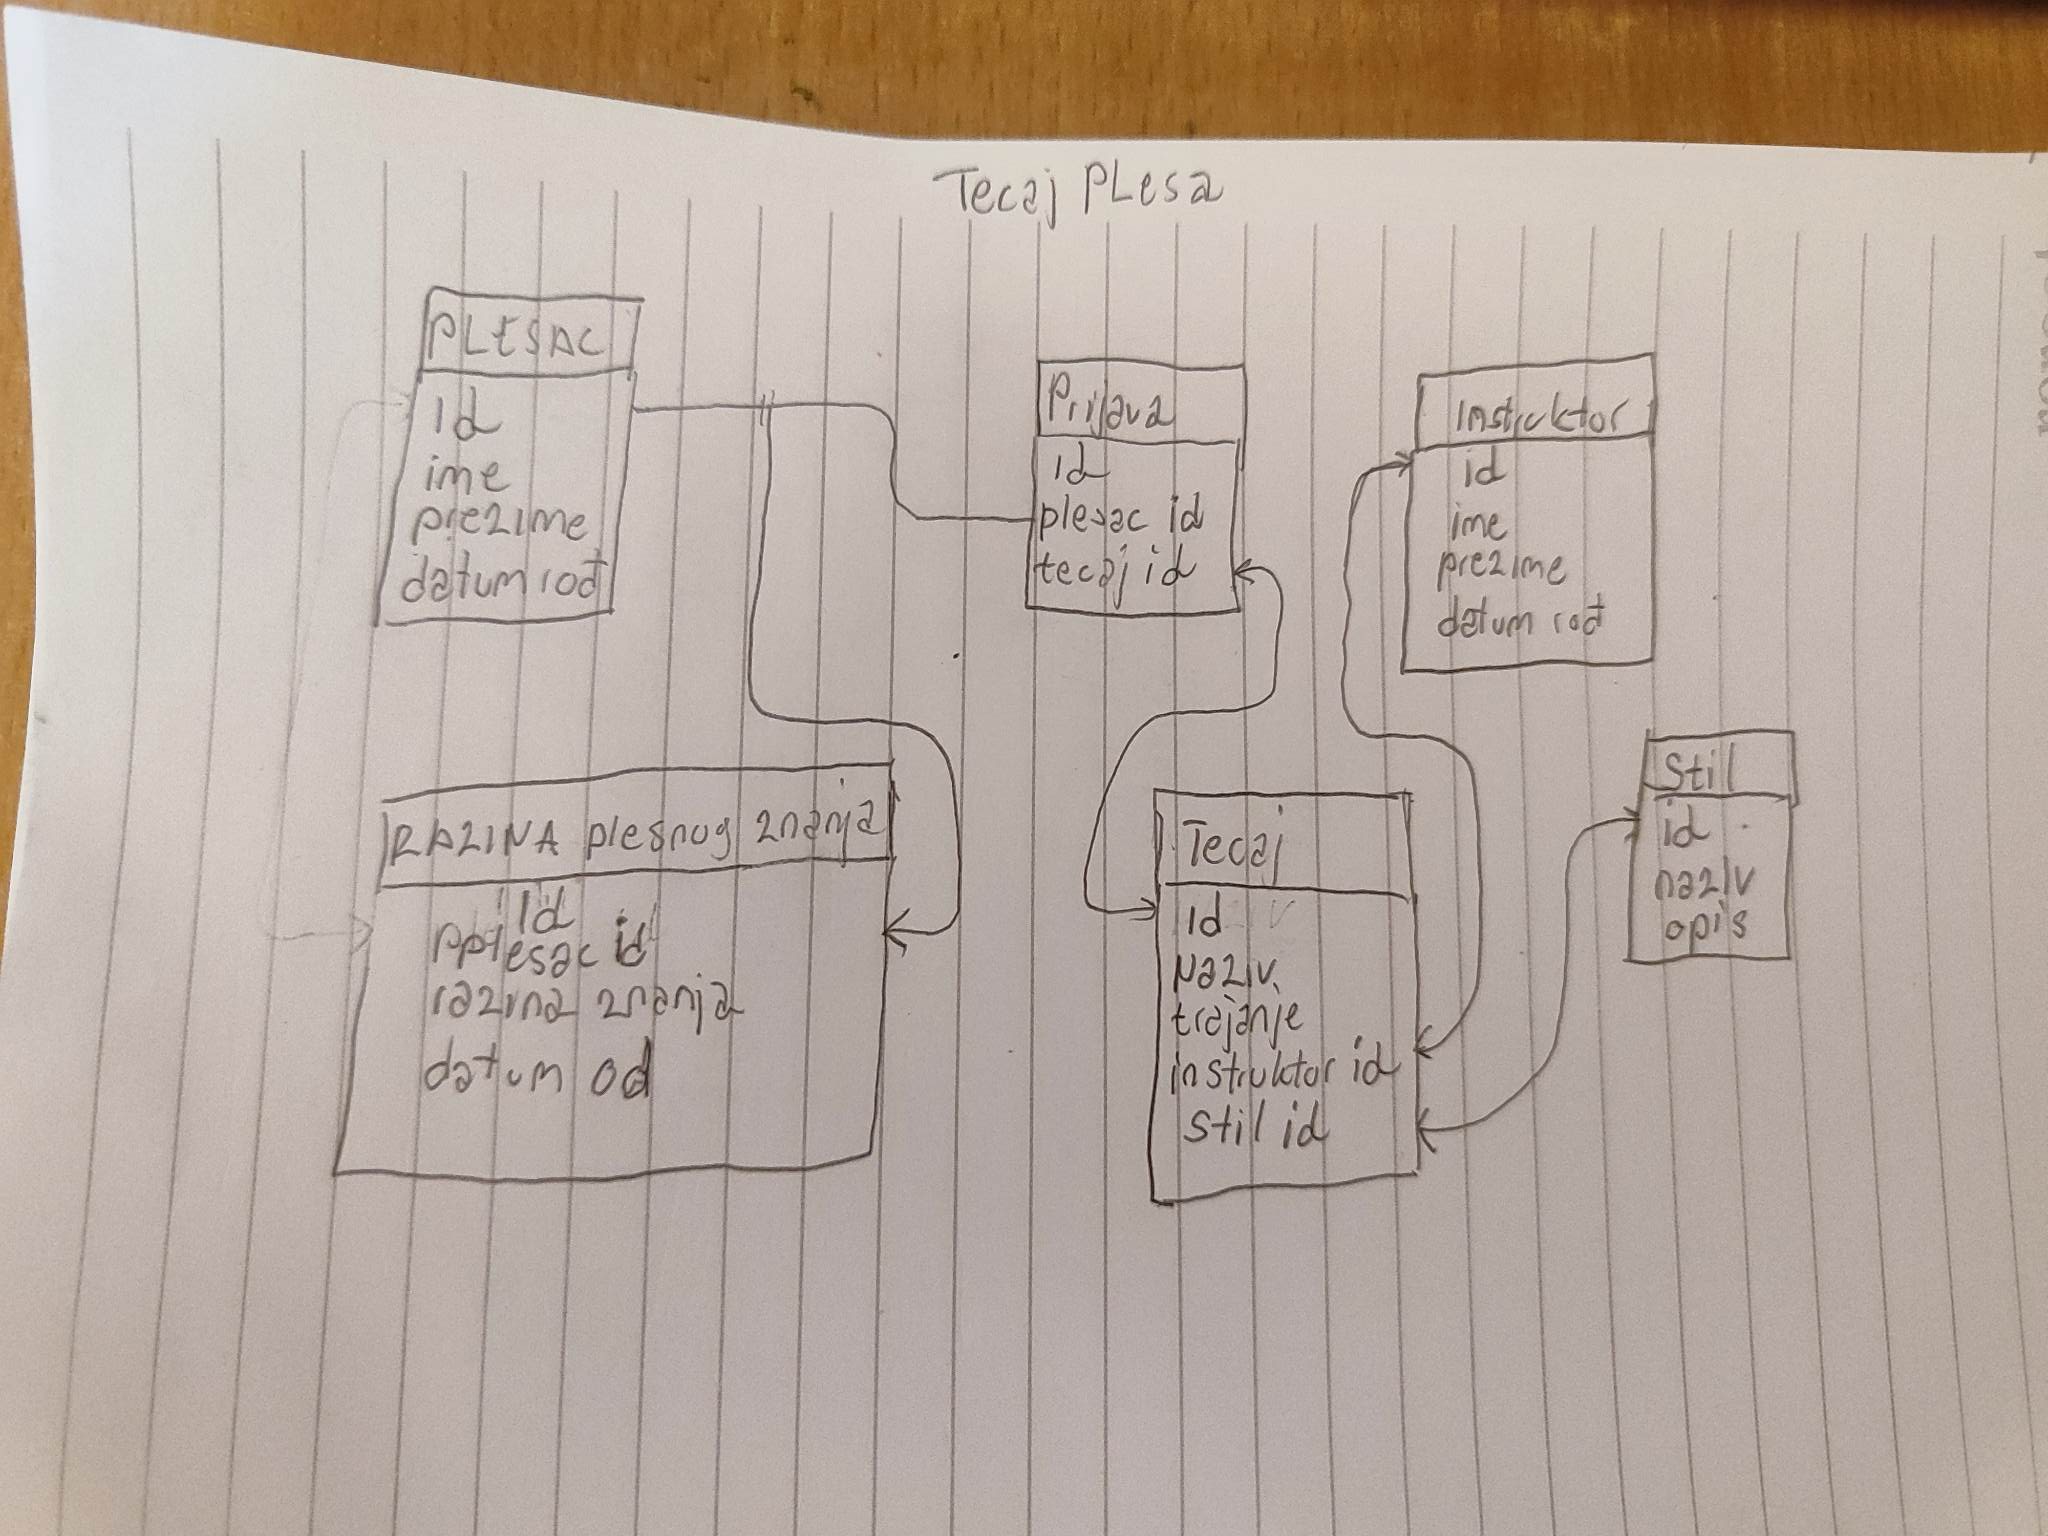 Tecaj PLesa
PLESAC
id
ime
prezime
datum rođ
Prijava
id
plesac id
tecaj id
instruktor
id
ime
prezime
datum rođ
RAZINA plesnog znanja
id
plesac id
razina znanja
datum od
Tecaj
id
Naziv
trajanje
instruktor id
Stil id
Stil
id
naziv
opis